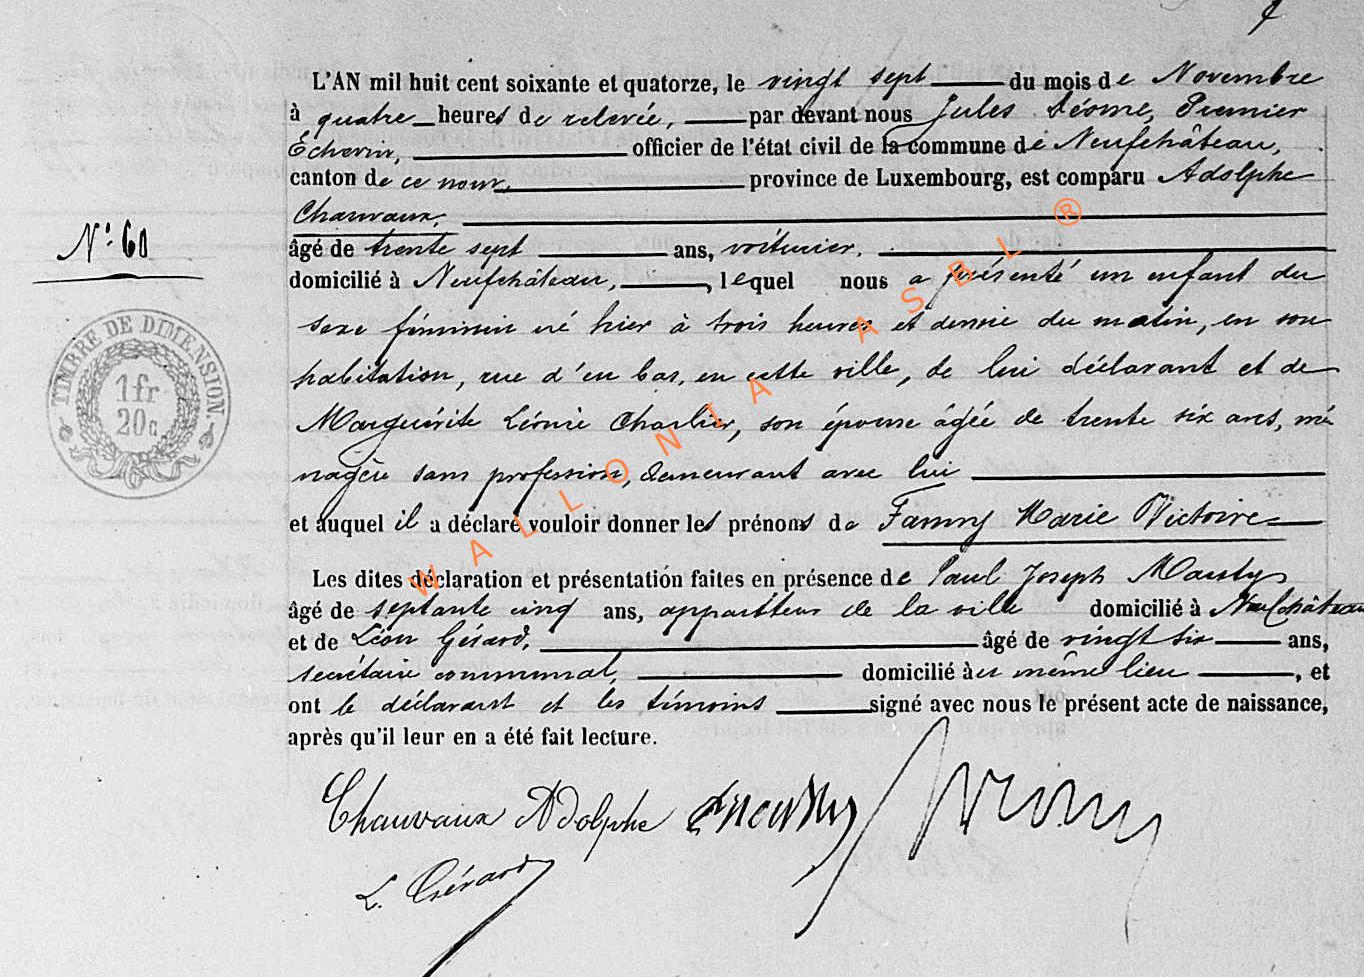 L'AN mil huit cent soixante et quatorze, le vingt sept du mois de Novembre
à quatre heures de relevée, par devant nous Jules Premier
Échevin, officier de l'état civil de la commune de Neufchâteau,
canton de ce nom, province de Luxembourg, est comparu Adolphe
Chauvaux,
N° 60
âgé de trente sept ans, voiturier,
domicilié à Neufchâteau, , lequel nous a présenté un enfant du
sexe féminin né hier à trois heures et demie du matin, en son
habitation, rue d'en bas, en cette ville, de lui déclarant et de
Marguérite Léonie Charlier, son épouse âgée de trente six ans, mé
nagère sans profession, demeurant avec lui
et auquel il a déclaré vouloir donner les prénoms de Fanny Marie Victoire
Les dites déclaration et présentation faites en présence de Paul Joseph
âgé de septante cinq ans, appariteur de la ville domicilié à Neufchâteau
et de Léon Gérard, âgé de vingt six ans,
secrétaire communal, domicilié au même lieu , et
ont le déclarant et les témoins signé avec nous le présent acte de naissance,
après qu'il leur en a été fait lecture.
TIMBRE DE DIMENSION.
1 fr
20 c
Chauvaux Adolphe
L. Gérard
WALLONIA ASBL ®